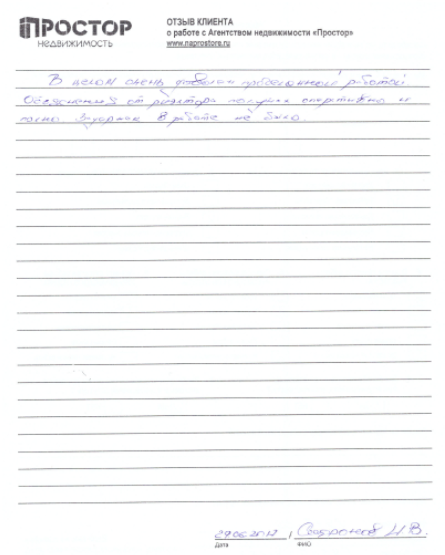 ПРОСТОР
НЕДВИЖИМОСТЬ
ОТЗЫВ КЛИЕНТА
о работе с Агентством недвижимости «Простор»
www.naprostore.ru
В целом очень доволен проделанной работой
Объяснения от риэлтора получил оперативно и
точно. Задержек в работе не было.
Дата
ФИО